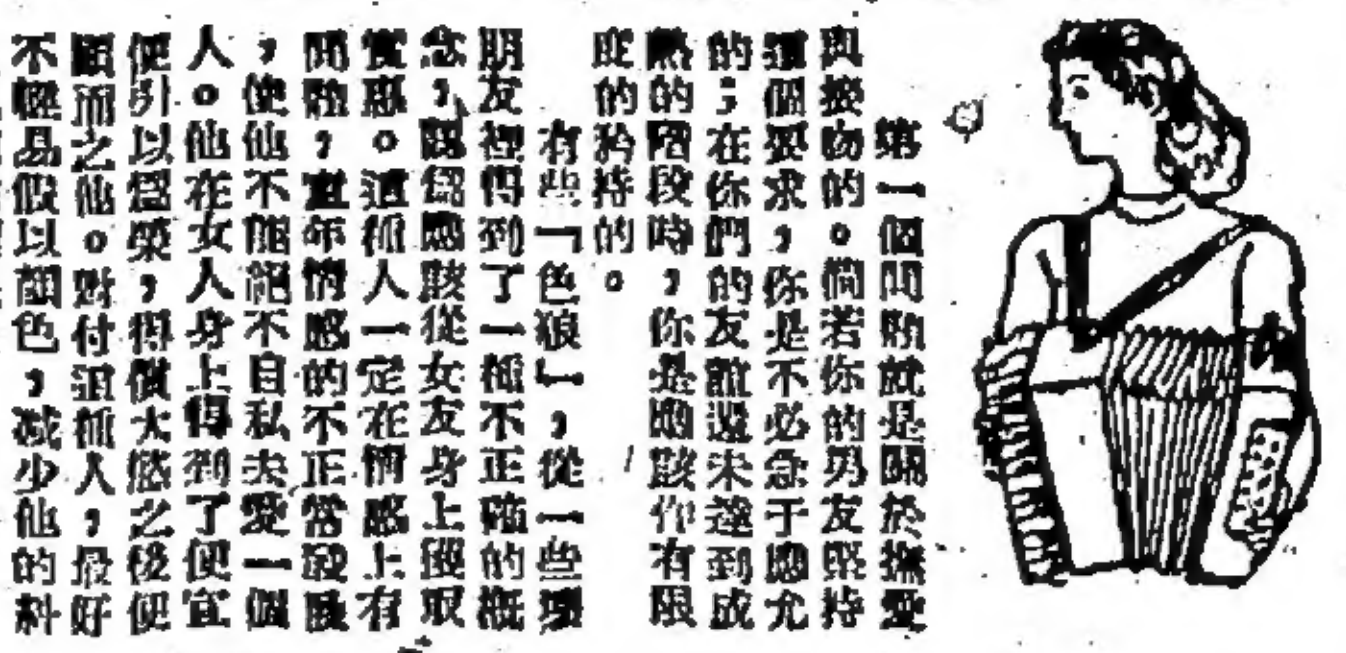 第一個問題就是關於撫愛
與接吻的。倘若你的男友堅持
這個要求，你是不必急于應允
的；在你們的友誼還未達到成
熟的階段時，你是應該作有限
度的矜持的。
有些「色狼」，從一些壞
朋友裡得到了一種不正確的概
念，認爲應該從女友身上獲取
實惠。這種人一定在情感上有
問題，童年情感的不正常發展
，使他不能絕不自私去愛一個
人。他在女人身上得到了便宜
便引以爲榮，得償大慾之後便
顧而之他。對付這種人，最好
不輕易假以顏色，减少他的糾